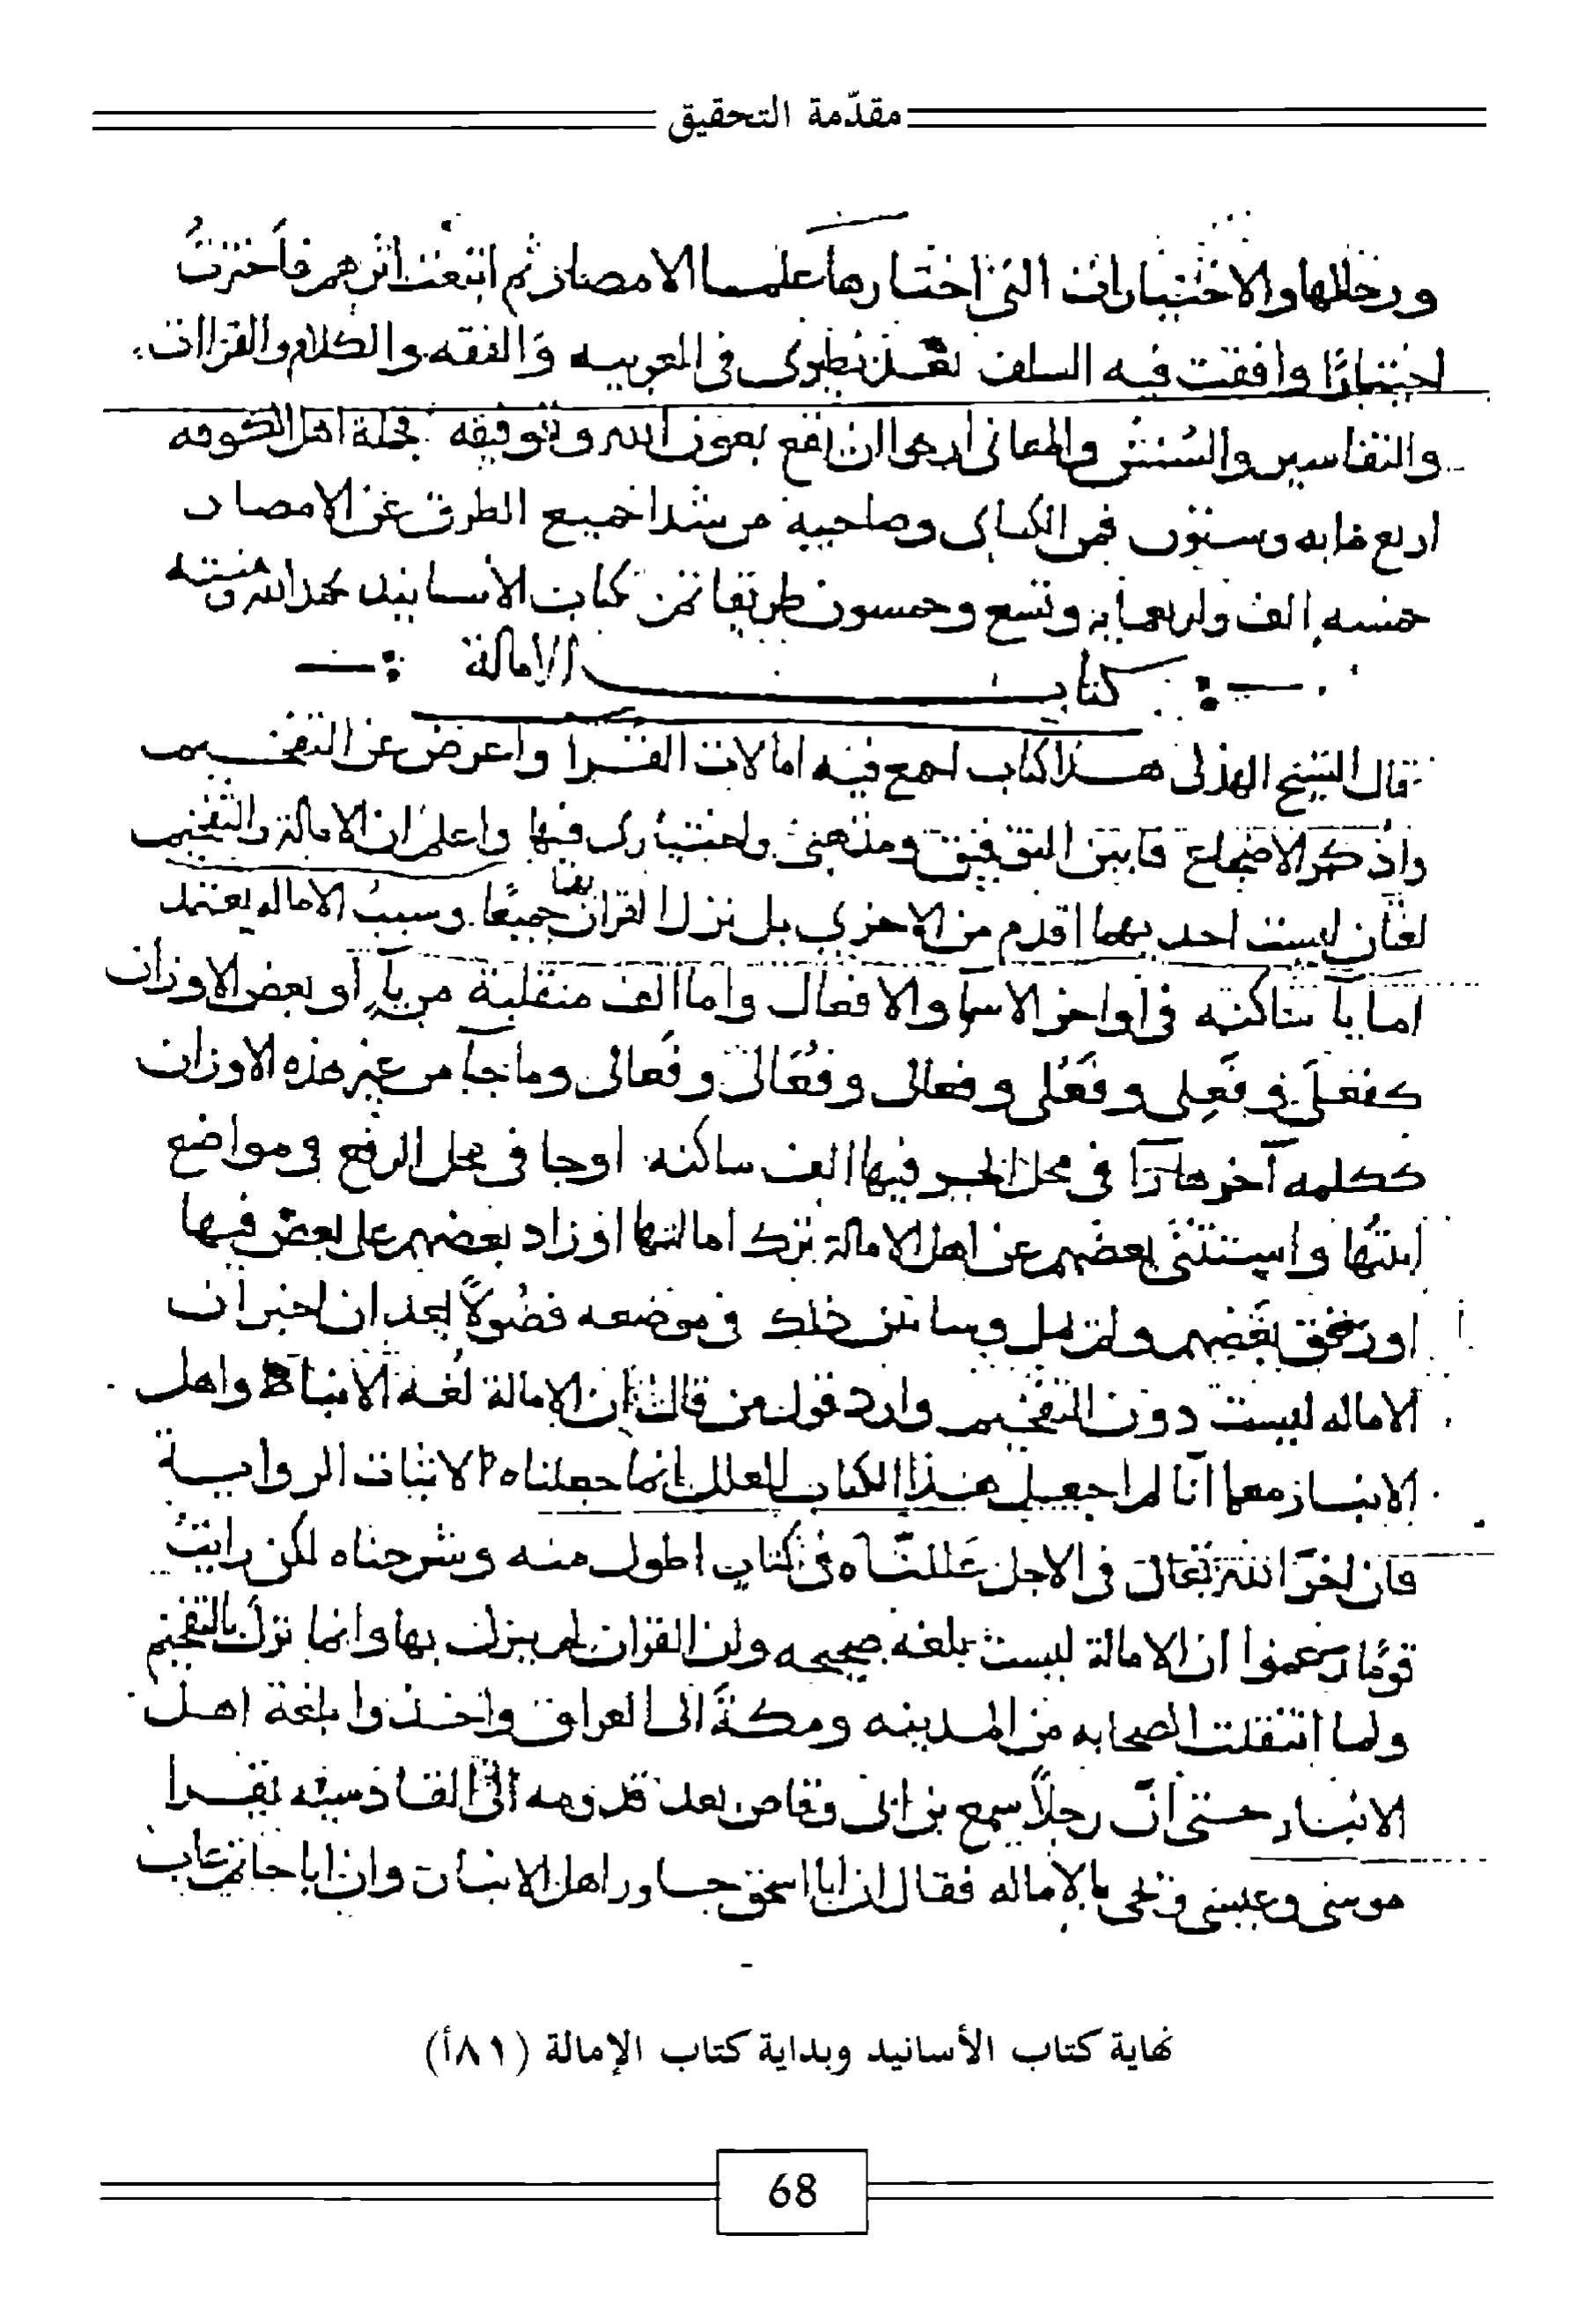 مقدّمة التحقيق
ورجالها والاختيارات التي اختارها علما الامصار ثم اتبعت اثرهم فاخترت
اختيارًا وافقت فيه السلف بعد نظري في العربيه والفقه والكلام والقراات
والتفاسير والسنن والمعاني ارجوا ان انفع بعون الله وتوفيقه فجملة اهل الكوفه
اربع مايه وستون فمن الكساي وصاحبيه جميع الطرق عن الامصار
خمسه الف واربعمايه وتسع وخمسون طريقا تمت كتاب الاسانيد بحمد الله ومنته
كتاب الامالة
قال الشيخ الهذلي هذا كتاب اجمع فيه امالات القرا واعرض عن التفخيم
واذكر الاضجاع وما بين التوفيق ومذهبي واختياري فيها واعلم ان الامالة والتفخيم
لغتان ليست احديهما اقدم من الاخرى بل نزل القران بهما جميعًا وسبب الاماله يعتمد
اما يا ساكنه في اواخر الاسمآ والافعال واما الف منقلبة من يآ او بعض الاوزان
كفعلى وفعلى وفعلى وفعالى وفعالى وفعالى وما جآ من غير هذه الاوزان
ككلمه آخرها رآ في محل الجر فيها الف ساكنه اوجا في محل الرفع في مواضع
ابنتها واستثنى بعضهم عن اهل الامالة ترك امالتها او زاد بعضهم على بعض فيها
او بعضهم ولم يمل وسابين ذلك في موضعه فصولًا بعد ان اخبر ان
الاماله ليست دون التفخيم وارد قول من قال ان الامالة لغة الانباط واهل
الانبار مع انا لم اجعل هذا الكتاب للعلل انما جعلناه لاثبات الرواية
فان اخر الله تعالى في الاجل عللناه في كتاب اطول منه وشرحناه لكن رايت
قومًا زعموا ان الامالة ليست بلغه صحيحه وان القران لم ينزل بها وانما نزل بالتفخيم
ولما انتقلت الصحابه من المدينه ومكة الى العراق واخذوا بلغة اهل
الانبار حتى انّ رجلًا سمع بن ابي وقاص بعد قدومه الى القادسيه يقرا
موسى وعيسى ويحيى بالاماله فقال ان ابا اسحق جاور اهل الانبار وان ابا حاتم عاب
نهاية كتاب الأسانيد وبداية كتاب الإمالة (٨١أ)
68